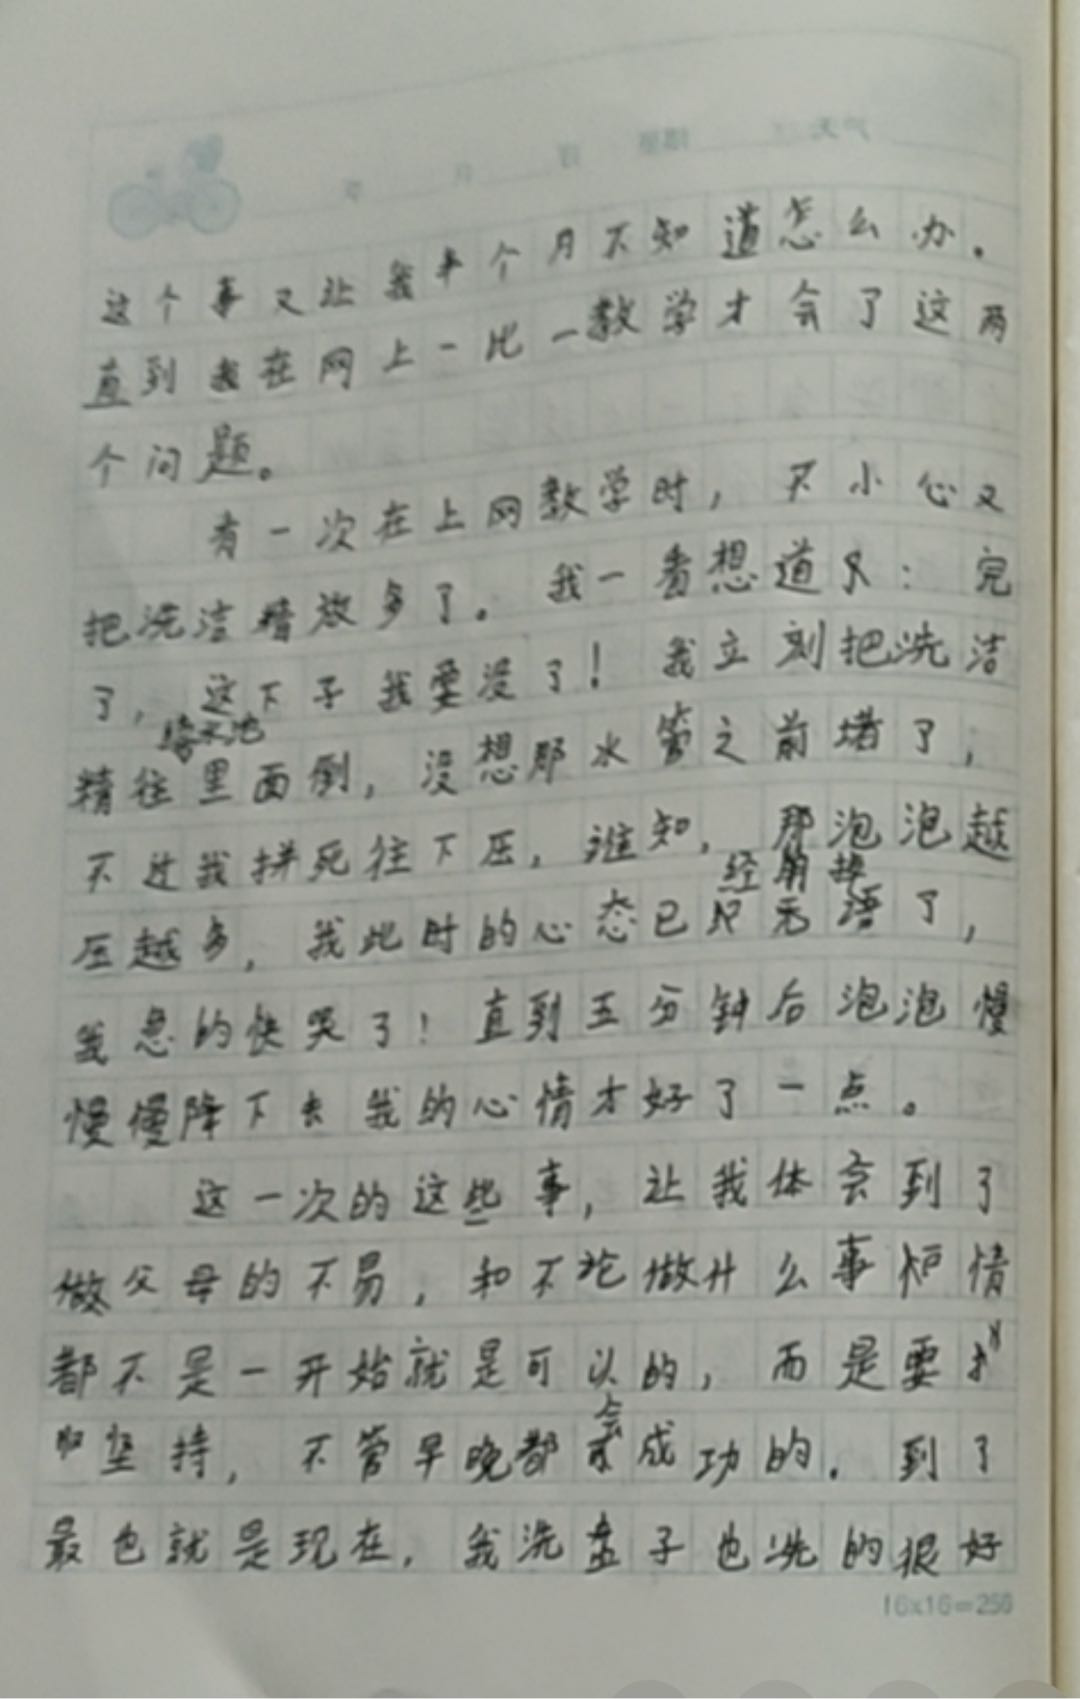 这个事又让我半个月不知道怎么办。
直到我在网上一比一教学才会了这两
个问题。
有一次在上网教学时，不小心又
把洗洁精放多了。我一看想道：完
了，这下子我要没了！我立刻把洗洁
精往里面倒，没想那水管之前堵了，
不过我拼死往下压，谁知，那泡泡越
压越多，我此时的心态已经崩
了，
我急的快哭了！直到五分钟后泡泡慢
慢慢降下去我的心情才好了一点。
这一次的这些事，让我体会到了
做父母的不易，和不论做什么事情
都不是一开始就是可以的，而是要
坚持，不管早晚都会成功的。到了
最也就是现在，我洗盘子也洗的很好
16x16=256